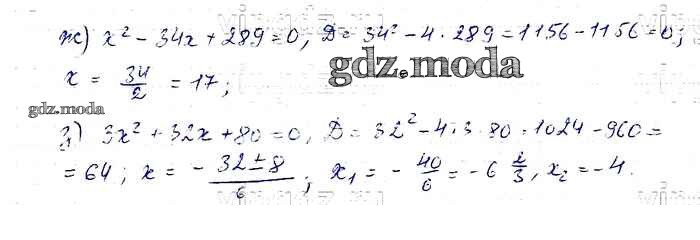 ж) x² - 34x + 289 = 0, D = 34² - 4 · 289 = 1156 - 1156 = 0;
gdz.moda
x = 34/2 = 17;
gdz.moda
з) 3x² + 32x + 80 = 0, D = 32² - 4·3·80 = 1024 - 960 =
= 64; x = - 32±8/6; x₁ = - 40/6 = -6 2/3, x₂ = -4.